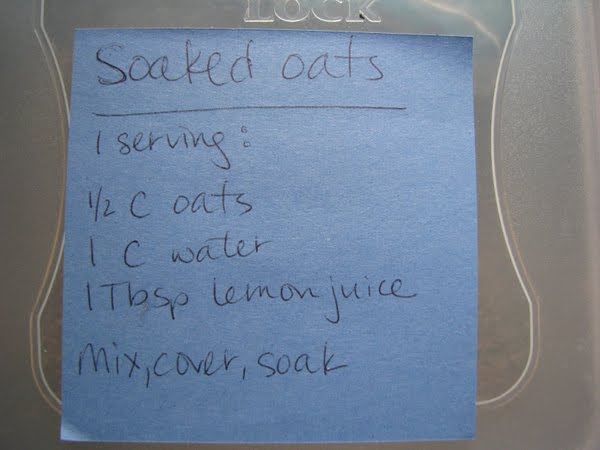 LOCK
Soaked oats
1 serving:
1/2 C oats
1 C water
1 Tbsp lemon juice
Mix, cover, soak